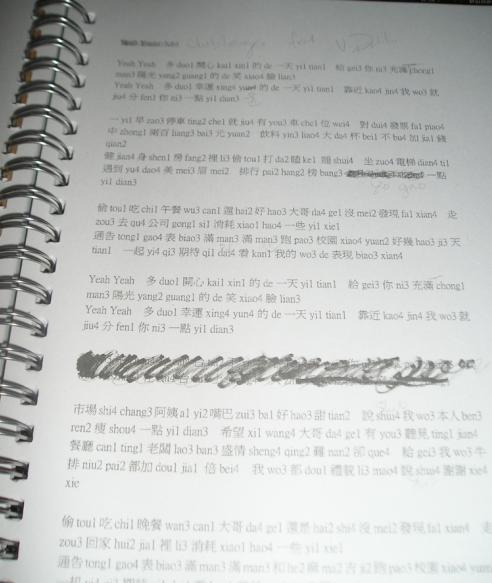 feat
Yeah Yeah 多 duo1 開心 kai1 xin1 的 de 一天 yi1 tian1 給 gei3 你 ni3 充滿 chong1
man3 陽光 yang2 guang1 的 de 笑 xiao4 臉 lian3
Yeah Yeah 多 duo1 幸運 xing4 yun4 的 de 一天 yi1 tian1 靠近 kao4 jin4 我 wo3 就
jiu4 分 fen1 你 ni3 一點 yi1 dian3
一 yi1 早 zao3 停車 ting2 che1 就 jiu4 有 you3 車 che1 位 wei4 對 dui4 發票 fa1 piao4
中 zhong1 兩百 liang3 bai3 元 yuan2 飲料 yin3 liao4 大 da4 杯 bei1 不 bu4 加 jia1 錢
qian2
健 jian4 身 shen1 房 fang2 裡 li3 偷 tou1 打 da2 瞌 ke1 睡 shui4 坐 zuo4 電梯 dian4 ti1
遇到 yu4 dao4 美 mei3 眉 mei2 排行 pai2 hang2 榜 bang3 一點
yi1 dian3
偷 tou1 吃 chi1 午餐 wu3 can1 還 hai2 好 hao3 大哥 da4 ge1 沒 mei2 發現 fa1 xian4 走
zou3 去 qu4 公司 gong1 si1 消耗 xiao1 hao4 一些 yi1 xie1
通告 tong1 gao4 表 biao3 滿 man3 滿 man3 跑 pao3 校園 xiao4 yuan2 好幾 hao3 ji3 天
tian1 一起 yi4 qi3 期待 qi1 dai4 看 kan1 我的 wo3 de 表現 biao3 xian4
Yeah Yeah 多 duo1 開心 kai1 xin1 的 de 一天 yi1 tian1 給 gei3 你 ni3 充滿 chong1
man3 陽光 yang2 guang1 的 de 笑 xiao4 臉 lian3
Yeah Yeah 多 duo1 幸運 xing4 yun4 的 de 一天 yi1 tian1 靠近 kao4 jin4 我 wo3 就
jiu4 分 fen1 你 ni3 一點 yi1 dian3
市場 shi4 chang3 阿姨 a1 yi2 嘴巴 zui3 ba1 好 hao3 甜 tian2 說 shui4 我 wo3 本人 ben3
ren2 瘦 shou4 一點 yi1 dian3 希望 xi1 wang4 大哥 da4 ge1 有 you3 聽見 ting1 jian4
餐廳 can1 ting1 老闆 lao3 ban3 盛情 sheng4 qing2 難 nan2 卻 que4 給 gei3 我 wo3 牛
排 niu2 pai2 都加 dou1 jia1 倍 bei4 我 wo3 都 dou1 禮貌 li3 mao4 說 謝謝 xie4
xie
偷 tou1 吃 chi1 晚餐 wan3 can1 大哥 da4 ge1 還是 hai2 shi4 沒 mei2 發現 fa1 xian4 走
zou3 回家 hui2 jia1 裡 li3 消耗 xiao1 hao4 一些 yi1 xie1
通告 tong1 gao4 表 biao3 滿 man3 滿 man3 和 he2 麻吉 ma2 ji2 跑 pao3 校園 xiao4 yuan